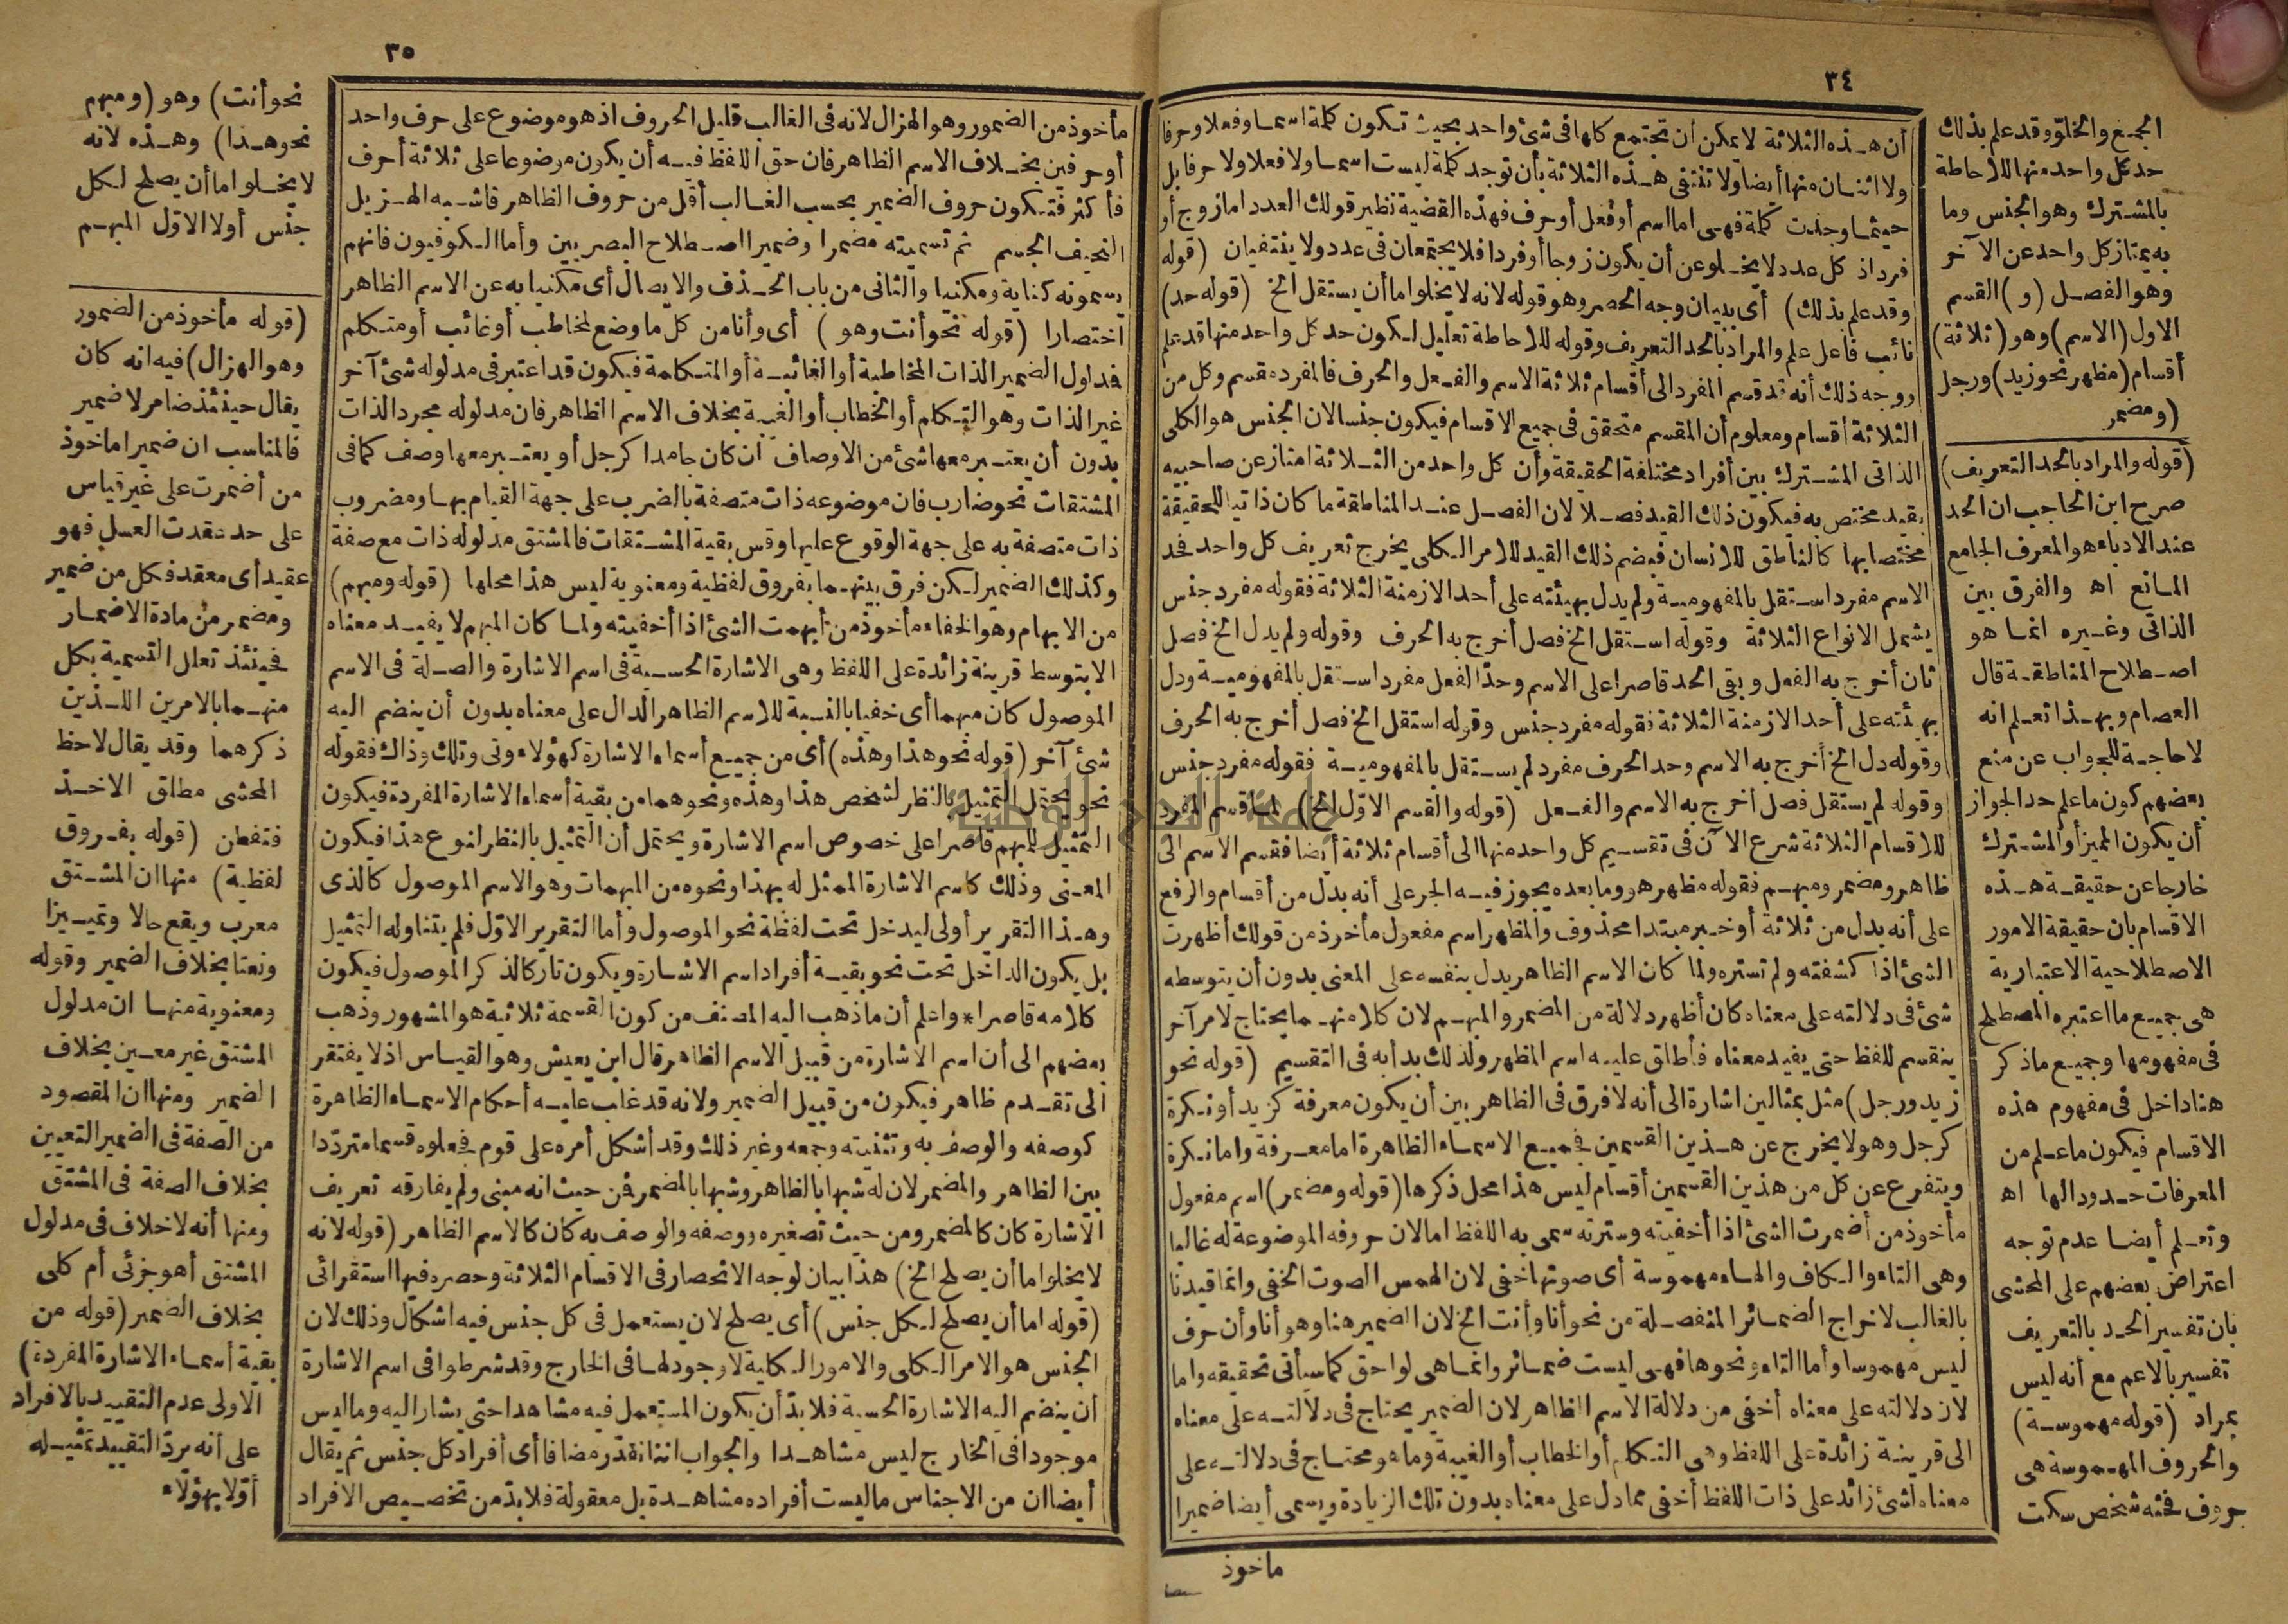 ٣٤
الجمع والخلو وقد علم بذلك
حد كل واحد منها للاحاطة
بالمشترك وهو الجنس وما
به يمتاز كل واحد عن الآخر
وهو الفصل (و) القسم
الاول (الاسم) وهو (ثلاثة)
أقسام (مظهر نحو زيد) ورجل
(ومضمر
(قوله والمراد بالحد التعريف)
صرح ابن الحاجب ان الحد
عند الادباء هو المعرف الجامع
المانع اه والفرق بين
الذاتى وغيره انما هو
اصطلاح المناطقة قال
العصام وبهذا تعلم انه
لا حاجة للجواب عن منع
بعضهم كون ما علم حد الجواز
أن يكون المميز أو المشترك
خارجا عن حقيقة هذه
الاقسام بان حقيقة الامور
الاصطلاحية الاعتبارية
هى جميع ما اعتبره المصطلح
فى مفهومها وجميع ما ذكر
هنا داخل فى مفهوم هذه
الاقسام فيكون ما علم من
المعرفات حدودا لها اه
وتعلم أيضا عدم توجه
اعتراض بعضهم على المحشى
بان تفسير الحد بالتعريف
تفسير بالاعم مع أنه ليس
بمراد (قوله مهموسة)
والحروف المهموسة هى
حروف فحثه شخص سكت
أن هذه الثلاثة لا يمكن أن تجتمع كلها فى شئ واحد بحيث تكون كلمة اسما وفعلا وحرفا
ولا اثنان منها أيضا ولا تنتفى هذه الثلاثة بأن توجد كلمة ليست اسما ولا فعلا ولا حرفا بل
حيثما وجدت كلمة فهى اما اسم أو فعل أو حرف فهذه القضية نظير قولك العدد اما زوج أو
فرد اذ كل عدد لا يخلو عن أن يكون زوجا أو فردا فلا يجتمعان فى عدد ولا ينتفيان (قوله
وقد علم بذلك) أى ببيان وجه الحصر وهو قوله لانه لا يخلو اما أن يستقل الخ (قوله حد)
نائب فاعل علم والمراد بالحد التعريف وقوله للاحاطة تعليل لكون حد كل واحد منها قد علم
ووجه ذلك أنه قد قسم المفرد الى أقسام ثلاثة الاسم والفعل والحرف فالمفرد مقسم وكل من
الثلاثة أقسام ومعلوم أن المقسم متحقق فى جميع الاقسام فيكون جنسا لان الجنس هو الكلى
الذاتى المشترك بين أفراد مختلفة الحقيقة وأن كل واحد من الثلاثة امتاز عن صاحبيه
بقيد مختص به فيكون ذلك القيد فصلا لان الفصل عند المناطقة ما كان ذاتيا للحقيقة
مختصا بها كالناطق للانسان فبضم ذلك القيد للامر الكلى يخرج تعريف كل واحد فحد
الاسم مفرد استقل بالمفهومية ولم يدل بهيئته على أحد الازمنة الثلاثة فقوله مفرد جنس
يشمل الانواع الثلاثة وقوله استقل الخ فصل أخرج به الحرف وقوله ولم يدل الخ فصل
ثان أخرج به الفعل وبقى الحد قاصرا على الاسم وحد الفعل مفرد استقل بالمفهومية ودل
بهيئته على أحد الازمنة الثلاثة فقوله مفرد جنس وقوله استقل الخ فصل أخرج به الحرف
وقوله دل الخ أخرج به الاسم وحد الحرف مفرد لم يستقل بالمفهومية فقوله مفرد جنس
وقوله لم يستقل فصل أخرج به الاسم والفعل (قوله والقسم الاول الخ) لما قسم المفرد
للاقسام الثلاثة شرع الآن فى تقسيم كل واحد منها الى أقسام ثلاثة أيضا فقسم الاسم الى
ظاهر ومضمر ومبهم فقوله مظهر هو وما بعده يجوز فيه الجر على أنه بدل من أقسام والرفع
على أنه بدل من ثلاثة أو خبر مبتدا محذوف والمظهر اسم مفعول مأخوذ من قولك أظهرت
الشئ اذا كشفته ولم تستره ولما كان الاسم الظاهر يدل بنفسه على المعنى بدون أن يتوسطه
شئ فى دلالته على معناه كان أظهر دلالة من المضمر والمبهم لان كلا منهما يحتاج لامر آخر
ينقسم للفظ حتى يفيد معناه فأطلق عليه اسم المظهر ولذلك بدأ به فى التقسيم (قوله نحو
زيد ورجل) مثل بمثالين اشارة الى أنه لا فرق فى الظاهر بين أن يكون معرفة كزيد أو نكرة
كرجل وهو لا يخرج عن هذين القسمين فجميع الاسماء الظاهرة اما معرفة واما نكرة
ويتفرع عن كل من هذين القسمين أقسام ليس هذا محل ذكرها (قوله ومضمر) اسم مفعول
مأخوذ من أضمرت الشئ اذا أخفيته وسترته سمى به اللفظ اما لان حروفه الموضوعة له غالبا
وهى التاء والكاف والهاء مهموسة أى صوتها خفى لان الهمس الصوت الخفى وانما قيدنا
بالغالب لاخراج الضمائر المنفصلة من نحو أنا وأنت الخ لان الضمير هنا وهو أنا وأن حرف
ليس مهموسا وأما التاء ونحوها فهى ليست ضمائر وانما هى لواحق كما سيأتى تحقيقه واما
لان دلالته على معناه أخفى من دلالة الاسم الظاهر لان الضمير يحتاج فى دلالته على معناه
الى قرينة زائدة على اللفظ وهى التكلم أو الخطاب أو الغيبة وما هو محتاج فى دلالته على
معناه لشئ زائد على ذات اللفظ أخفى مما دل على معناه بدون تلك الزيادة ويسمى أيضا ضميرا
ماخوذ
٣٥
مأخوذ من الضمور وهو الهزال لانه فى الغالب قليل الحروف اذ هو موضوع على حرف واحد
أو حرفين بخلاف الاسم الظاهر فان حق اللفظ فيه أن يكون موضوعا على ثلاثة أحرف
فأكثر فتكون حروف الضمير بحسب الغالب أقل من حروف الظاهر فاشبه الهزيل
النحيف الجسم ثم تسميته مضمرا وضميرا اصطلاح البصريين وأما الكوفيون فانهم
يسمونه كناية ومكنيا والثانى من باب الحذف والايصال أى مكنيا به عن الاسم الظاهر
اختصارا (قوله نحو أنت وهو) أى وأنا من كل ما وضع لمخاطب أو غائب أو متكلم
فدلول الضمير الذات المخاطبة أو الغائبة أو المتكلمة فيكون قد اعتبر فى مدلوله شئ آخر
غير الذات وهو التكلم أو الخطاب أو الغيبة بخلاف الاسم الظاهر فان مدلوله مجرد الذات
بدون أن يعتبر معها شئ من الاوصاف ان كان جامدا كرجل أو يعتبر معها وصف كما فى
المشتقات نحو ضارب فان موضوعه ذات متصفة بالضرب على جهة القيام بها ومضروب
ذات متصفة به على جهة الوقوع عليها وقس بقية المشتقات فالمشتق مدلوله ذات مع صفة
وكذلك الضمير لكن فرق بينهما بفروق لفظية ومعنوية ليس هذا محلها (قوله ومبهم)
من الابهام وهو الخفاء مأخوذ من أبهمت الشئ اذا أخفيته ولما كان المبهم لا يفيد معناه
الا بتوسط قرينة زائدة على اللفظ وهى الاشارة الحسية فى اسم الاشارة والصلة فى الاسم
الموصول كان مبهما أى خفيا بالنسبة للاسم الظاهر الدال على معناه بدون أن ينضم اليه
شئ آخر (قوله نحو هذا وهذه) أى من جميع أسماء الاشارة كهؤلاء وتى وتلك وذاك فقوله
نحو يحتمل التمثيل بالنظر لشخص هذا وهذه ونحوهما من بقية أسماء الاشارة المفردة فيكون
التمثيل للمبهم قاصرا على خصوص اسم الاشارة ويحتمل أن التمثيل بالنظر لنوع هذا فيكون
المعنى وذلك كاسم الاشارة الممثل له بهذا ونحوه من المبهمات وهو الاسم الموصول كالذى
وهذا التقرير أولى ليدخل تحت لفظة نحو الموصول وأما التقرير الاول فلم يتناوله التمثيل
بل يكون الداخل تحت نحو بقية أفراد اسم الاشارة ويكون تاركا لذكر الموصول فيكون
كلامه قاصرا * واعلم أن ما ذهب اليه المصنف من كون القسمة ثلاثية هو المشهور وذهب
بعضهم الى أن اسم الاشارة من قبيل الاسم الظاهر قال ابن يعيش وهو القياس اذ لا يفتقر
الى تقدم ظاهر فيكون من قبيل الضمير ولانه قد غلب عليه أحكام الاسماء الظاهرة
كوصفه والوصف به وتثنيته وجمعه وغير ذلك وقد أشكل أمره على قوم فجعلوه قسما مترددا
بين الظاهر والمضمر لان له شبها بالظاهر وشبها بالمضمر فمن حيث انه مبنى ولم يفارقه تعريف
الاشارة كان كالمضمر ومن حيث تصغيره ووصفه والوصف به كان كالاسم الظاهر (قوله لانه
لا يخلو اما أن يصلح الخ) هذا بيان لوجه الانحصار فى الاقسام الثلاثة وحصره فيها استقرائى
(قوله اما أن يصلح لكل جنس) أى يصلح لان يستعمل فى كل جنس فيه اشكال وذلك لان
الجنس هو الامر الكلى والامور الكلية لا وجود لها فى الخارج وقد شرطوا فى اسم الاشارة
أن ينضم اليه الاشارة الحسية فلا بد أن يكون المستعمل فيه مشاهدا حتى يشار اليه وما ليس
موجودا فى الخارج ليس مشاهدا والجواب اننا نقدر مضافا أى أفراد كل جنس ثم يقال
أيضا ان من الاجناس ما ليست أفراده مشاهدة بل معقولة فلا بد من تخصيص الافراد
نحو أنت) وهو (ومبهم
نحو هذا) وهذه لانه
لا يخلو اما أن يصلح لكل
جنس أو لا الاول المبهم
(قوله مأخوذ من الضمور
وهو الهزال) فيه انه كان
يقال حينئذ ضامر لا ضمير
فالمناسب ان ضميرا ماخوذ
من أضمرت على غير قياس
على حد عقدت العسل فهو
عقيد أى معقد فكل من ضمير
ومضمر من مادة الاضمار
فحينئذ تعلل التسمية بكل
منهما بالامرين اللذين
ذكرهما وقد يقال لاحظ
المحشى مطلق الاخذ
فتفطن (قوله بفروق
لفظية) منها ان المشتق
معرب ويقع حالا وتمييزا
ونعتا بخلاف الضمير وقوله
ومعنوية منها ان مدلول
المشتق غير معين بخلاف
الضمير ومنها ان المقصود
من الصفة فى الضمير التعيين
بخلاف الصفة فى المشتق
ومنها أنه لا خلاف فى مدلول
المشتق أهو جزئى أم كلى
بخلاف الضمير (قوله من
بقية أسماء الاشارة المفردة)
الاولى عدم التقييد بالافراد
على أنه يرد التقييد تمثيله
أولا بهؤلاء